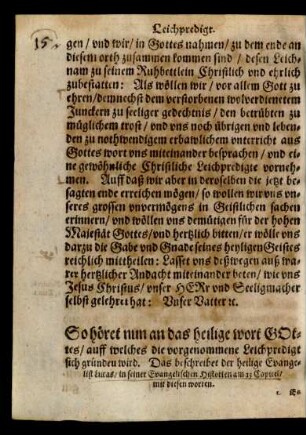 Leichpredigt.
15.
gen / vnd wir / in Gottes nahmen / zu dem ende an
diesem orth zusammen kommen sind / desen Leich-
nam zu seinem Ruhbettlein Christlich vnd ehrlich
zubestatten: Als wöllen wir / vor allem Gott zu
ehren / demnechst dem verstorbenen wolverdienetem
Junckern zu seeliger gedechtnis / den betrübten zu
müglichem trost / vnd vns noch übrigen vnd leben-
den zu nothwendigem erbawlichem unterricht aus
Gottes wort vns miteinander besprachen / vnd ei-
ne gewöhnliche Christliche Leichpredigte vorneh-
men. Auff daß wir aber in deroselben die jetzt be-
sagten ende erreichen mögen / so wollen wir vns vn-
seres grossen vnvermögens in Geistlichen sachen
erinnern / vnd wöllen vns demütigen für der hohen
Majestät Gottes / vnd hertzlich bitten / er wölle vns
darzu die Gabe vnd Gnade seines heyligen Geistes
reichlich mittheilen: Lasset vns deßwegen auß wa-
rer hertzlicher Andacht miteinander beten / wie vns
Jesus Christus / vnser HERr vnd Seeligmacher
selbst gelehret hat: Vnser Vatter ꝛc.
So höret nun an das heilige wort GOt-
tes / auff welches die vorgenommene Leichpredigt
sich gründen wird. Das beschreibet der heilige Evange-
list Lucas / in seiner Evangelischen Historien am Capitel /
mit diesen worten.